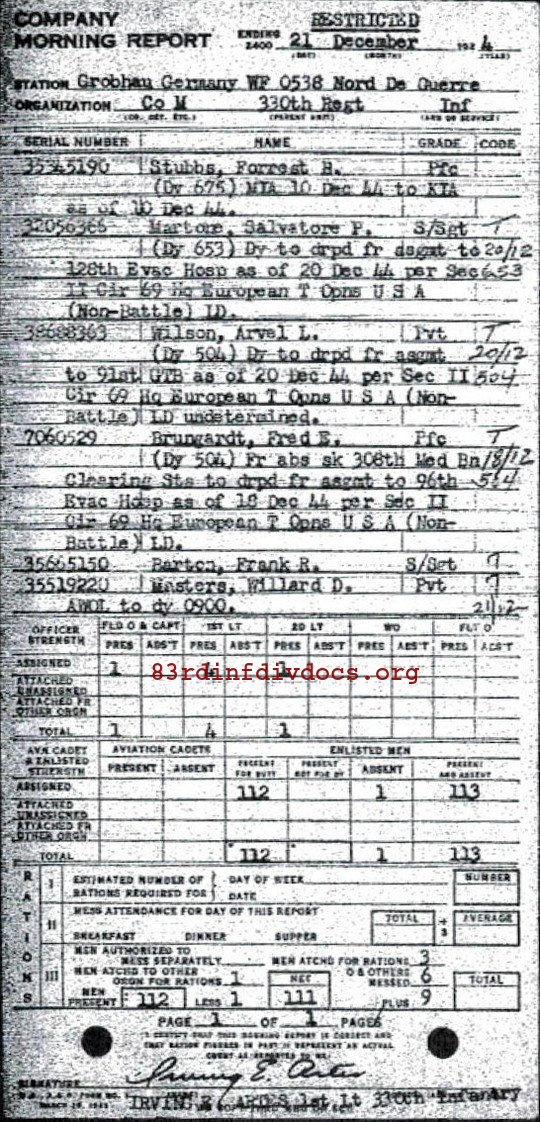 COMPANY
MORNING REPORT
RESTRICTED
ENDING 2400 21 December 194 4
(DAY) (MONTH) (YEAR)
STATION Grobhau Germany WF 0538 Nord De Guerre
ORGANIZATION Co M 330th Regt Inf
(CO. DET. ETC.) (PARENT UNIT) (ARM OR SERVICE)
SERIAL NUMBER NAME GRADE CODE
35345190 Stubbs, Forrest B. Pfc
(Dy 675) MIA 10 Dec 44 to KIA
as of 10 Dec 44.
32056366 Martore, Salvatore P. S/Sgt T
(Dy 653) Dy to drpd fr asgmt to 20/12
128th Evac Hosp as of 20 Dec 44 per Sec 653
II Cir 69 Hq European T Opns U S A
(Non-Battle) LD.
38688363 Wilson, Arval L. Pvt T
(Dy 504) Dy to drpd fr asgmt 20/12
to 91st GTB as of 20 Dec 44 per Sec II 504
Cir 69 Hq European T Opns U S A (Non-
Battle) LD undetermined.
7060529 Brungardt, Fred E. Pfc T
(Dy 504) Fr abs sk 308th Med Bn 18/12
Clearing Sta to drpd fr asgmt to 96th 504
Evac Hosp as of 18 Dec 44 per Sec II
Cir 69 Hq European T Opns U S A (Non-
Battle) LD.
35665150 Barton, Frank R. S/Sgt
35519220 Masters, Willard D. Pvt
AWOL to dy 0900. 21/12
OFFICER STRENGTH FLD O & CAPT 1ST LT 2D LT WO FLT O
PRES ABS'T PRES ABS'T PRES ABS'T PRES ABS'T PRES ABS'T
ASSIGNED 1 4 1
83rdinfdivdocs.org
ATTACHED UNASSIGNED
ATTACHED FR OTHER ORGN
TOTAL 1 4 1
AVN CADET & ENLISTED STRENGTH AVIATION CADETS ENLISTED MEN
PRESENT ABSENT PRESENT FOR DUTY PRESENT NOT FOR DY ABSENT PRESENT AND ABSENT
ASSIGNED 112 1 113
ATTACHED UNASSIGNED
ATTACHED FR OTHER ORGN
TOTAL 112 1 113
RATIONS
I ESTIMATED NUMBER OF RATIONS REQUIRED FOR DAY OF WEEK DATE NUMBER
II MESS ATTENDANCE FOR DAY OF THIS REPORT
BREAKFAST DINNER SUPPER TOTAL ÷ 3 AVERAGE
III MEN AUTHORIZED TO MESS SEPARATELY MEN ATCHD FOR RATIONS 3
MEN ATCHD TO OTHER ORGN FOR RATIONS 1 NET O & OTHERS MESSED 6 TOTAL
MEN PRESENT 112 LESS 1 111 PLUS 9
PAGE 1 OF 1 PAGES
I CERTIFY THAT THIS MORNING REPORT IS CORRECT AND
THAT RATION FIGURES IN PART III REPRESENT AN ACTUAL
COUNT AS REPORTED TO ME:
Irving E Artes
SIGNATURE
IRVING E. ARTES 1st Lt 330th Infantry